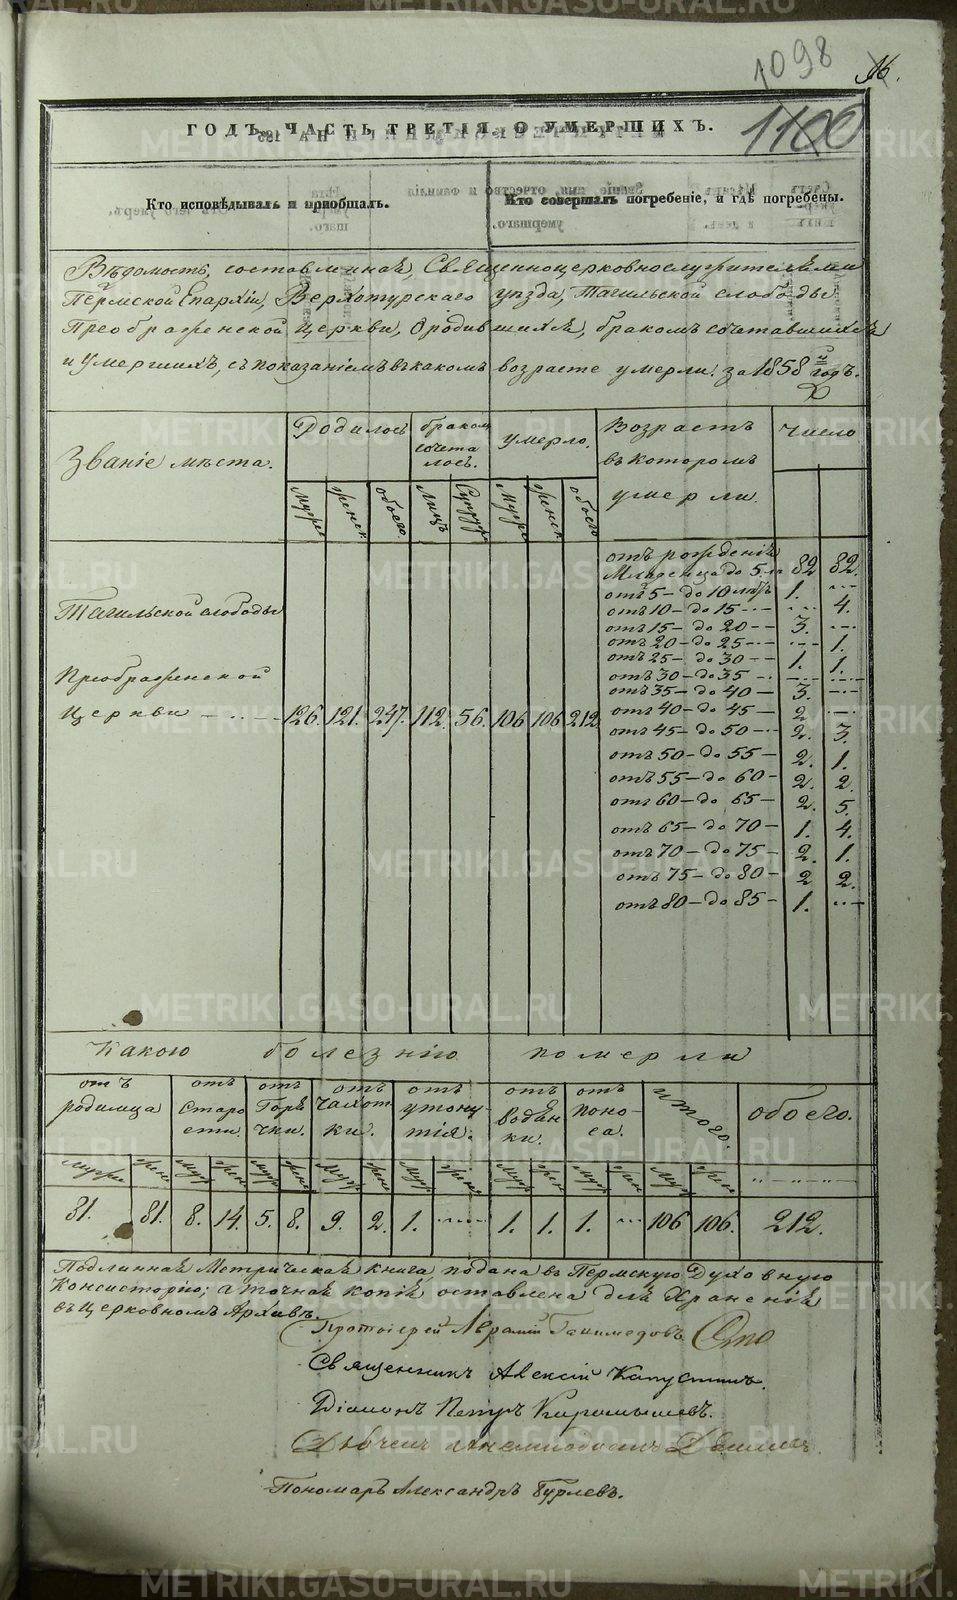 1098
16.
1100
ГОДЪ, ЧАСТЬ ТРЕТІЯ, О УМЕРШИХЪ.
Кто исповѣдывалъ и пріобщалъ.
Кто совершалъ погребеніе, и гдѣ погребены.
Вѣдомость, составленная, Священноцерковнослужителями
Пермской Епархіи, Верхотурскаго уѣзда, Тагильской слободы
Преображенской церкви, о родившихся, бракомъ сочетавшихся
и умершихъ, съ показаніемъ въ какомъ возрасте умерли: за 1858й годъ.
Званіе мѣста.
Родилось
бракомъ сочета лось.
умерло.
Возрастъ въ котором умерли.
Число
Мужс женск обоего. Лицъ Супруж Мужс женск обоего
отъ рожденія
Младенца до 5 82 82.
отъ 5 – до 10 лѣтъ 1. ---
отъ 10 – до 15 --- --- 4.
отъ 15 – до 20 -- 3. ---
отъ 20 – до 25 --- --- 1.
отъ 25 – до 30 -- 1. 1.
отъ 30 – до 35 --- --- ---
отъ 35 – до 40 – 3. ---
отъ 40 – до 45 – 2. ---
отъ 45 – до 50 --- 2. 3.
отъ 50 – до 55 – 2. 1.
отъ 55 – до 60 – 2. 2.
отъ 60 – до 65 – 2. 5.
отъ 65 – до 70 – 1. 4.
отъ 70 – до 75 – 2. 1.
отъ 75 – до 80 – 2 2.
отъ 80 – до 85 – 1. ---
Тагильской слободы
Преображенской
Церкви 126. 121. 247. 112. 56. 106 106 212
Какою болезнію померли
отъ родимца
отъ Старо сти.
отъ Горя чки.
отъ Чахот ки.
отъ утону тія.
отъ водян ки.
отъ поно са.
итого.
обоего.
мужс жен. муж жен. муж жен. муж жен. муж жен. муж жен. муж жен муж жен
81. 81. 8. 14. 5. 8. 9. 2. 1. --- 1. 1. 1. --- 106 106. 212.
Подлинная Метрическая книга, подана въ Пермскую Духовную
Консисторію; а точная копія оставлена для Храненія
въ Церковномъ Архивѣ.
Протоіерей Аврамій
Священникъ Алексій Капустинъ.
Діаконъ Петръ Кирамышевъ.
Пономарь Александръ Бурлевъ.
METRIKI.GASO-URAL.RU